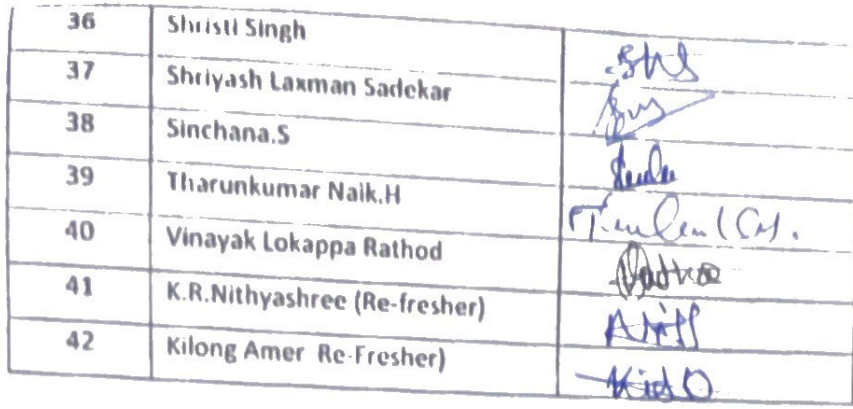 36 Shristi Singh
37 Shriyash Laxman Sadekar
38 Sinchana.S
39 Tharunkumar Naik.H
40 Vinayak Lokappa Rathod
41 K.R.Nithyashree (Re-fresher)
42 Kilong Amer Re-Fresher)